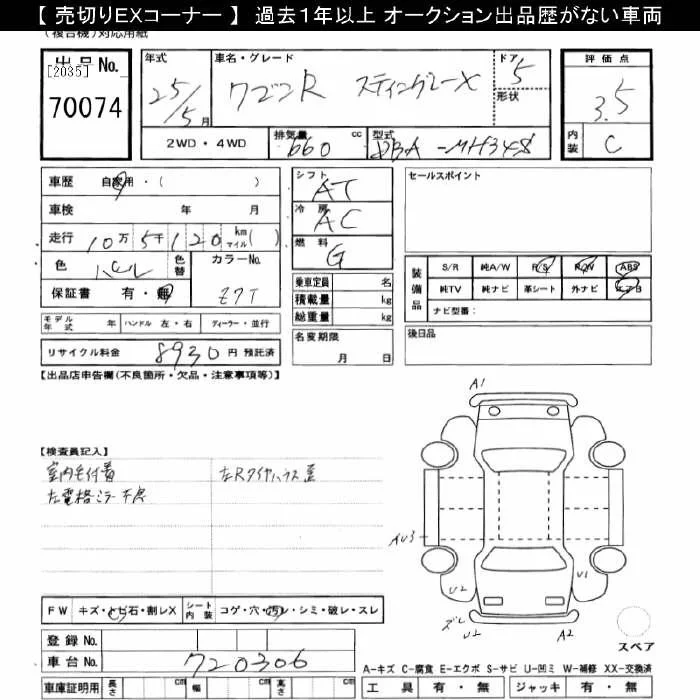 【 売切りEXコーナー 】 過去1年以上 オークション出品歴がない車両
(複合機)対応用紙
出品No.
[2035]
70074
年式
25/5月
車名・グレード
ワゴンR スティングレーX
ドア
5
形状
評価点
3.5
内装
C
2WD・4WD
排気量
660
cc
型式
DBA-MH34S
車歴 自家用・( )
車検 年 月
走行 10万5千120 km マイル( )
色 パール
色替
カラーNo.
Z7T
保証書 有・無
シフト
AT
冷房
AC
燃料
G
乗車定員 名
積載量 kg
総重量 kg
セールスポイント
装備品
S/R 純A/W P/S P/W ABS
純TV 純ナビ 革シート 外ナビ エアB
ナビ型番:
モデル年式 年 ハンドル 左・右 ディーラー・並行
リサイクル料金 8930 円 預託済
名変期限
月 日
後日品
【出品店申告欄(不良箇所・欠品・注意事項等)】
【検査員記入】
室内毛付着
左電格ミラー不良
左Rタイヤハウス歪
A1
AU3
U2
U1
ズレ
U2
A2
スペア
FW キズ・トビ石・割レX
シート内装 コゲ・穴・汚レ・シミ・破レ・スレ
登録No.
車台No.
720306
車庫証明用 長さ cm 幅 cm 高さ cm
A-キズ C-腐食 E-エクボ S-サビ U-凹ミ W-補修 XX-交換済
工具 有・無 ジャッキ 有・無